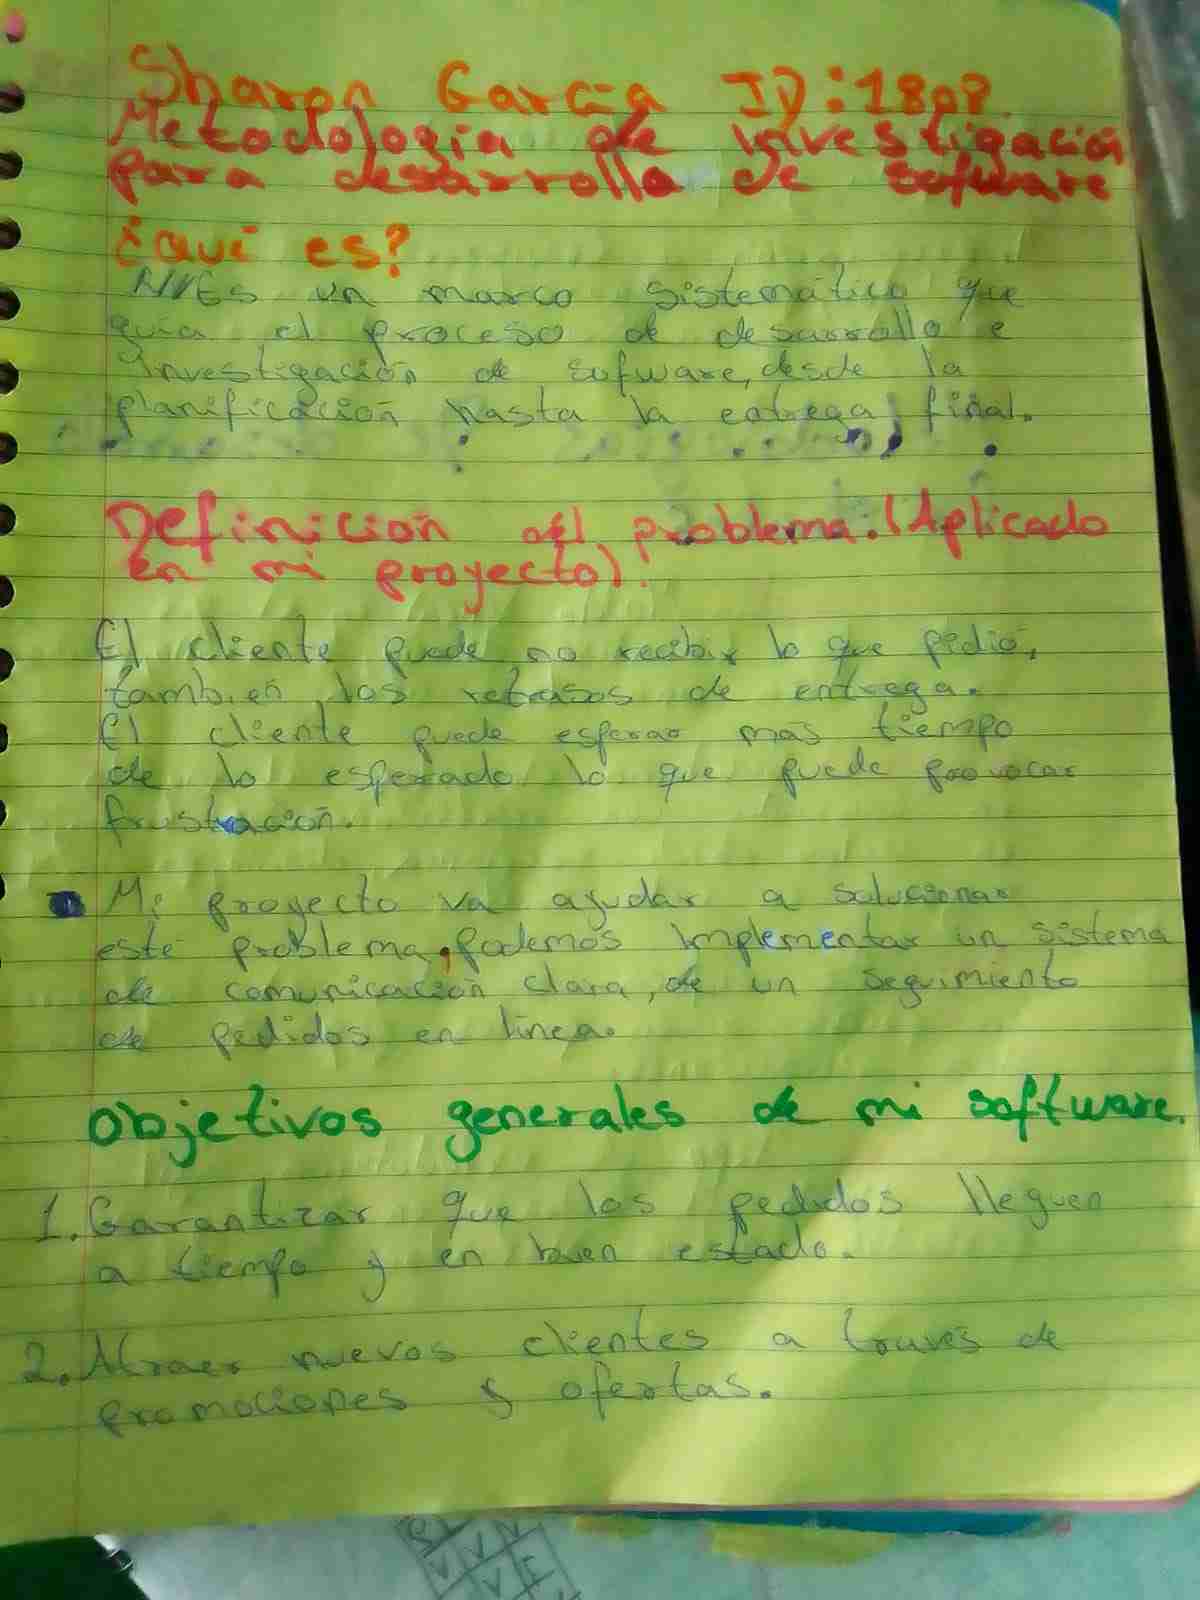 Sharon Garcia ID:1808
Metodologia de investigación
para desarrollo de software
¿que es?
Es un marco sistemático que
guia el proceso de desarrollo e
investigación de sofware, desde la
planificación hasta la entrega final.
Definición del problema. (Aplicado
en mi proyecto):
El cliente puede no recibir lo que pidió,
tambien los retrasos de entrega.
El cliente puede esperar mas tiempo
de lo esperado lo que puede provocar
frustración.
Mi proyecto va ayudar a solucionar
este problema, podemos implementar un sistema
de comunicación clara, de un seguimiento
de pedidos en linea.
objetivos generales de mi software.
1. Garantizar que los pedidos lleguen
a tiempo y en buen estado.
2. Atraer nuevos clientes a través de
promociones y ofertas.